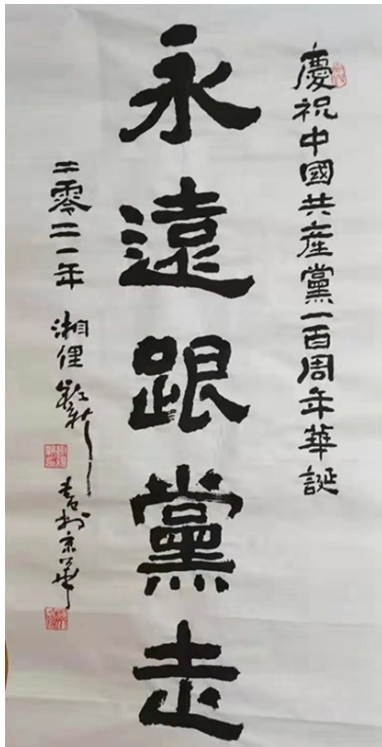 慶祝中國共產黨一百周年華誕
永遠跟黨走
二零二一年 湘俚
書於京華